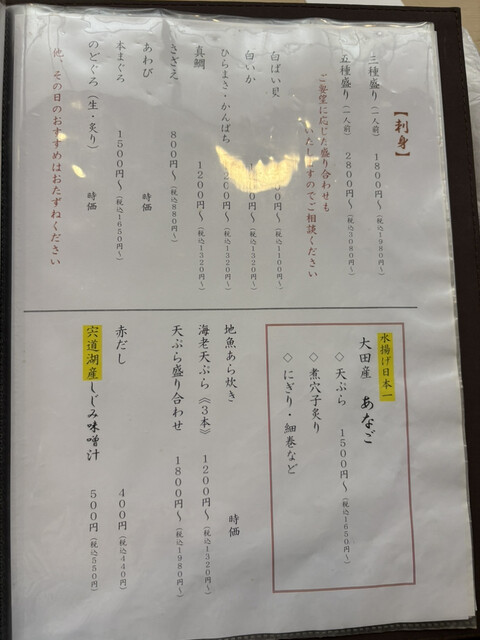 【刺身】
三種盛り(一人前) 1800円〜(税込1980円〜)
五種盛り(一人前) 2800円〜(税込3080円〜)
ご要望に応じた盛り合わせも
いたしますのでご相談ください
白ばい貝 00円〜(税込1100円〜)
白いか 00円〜(税込1320円〜)
ひらまさ・かんぱち 1200円〜(税込1320円〜)
真鯛 1200円〜(税込1320円〜)
さざえ 800円〜(税込880円〜)
あわび 時価
本まぐろ 1500円〜(税込1650円〜)
のどぐろ(生・炙り) 時価
他、その日のおすすめはおたずねください
水揚げ日本一
大田産 あなご
◇天ぷら 1500円〜(税込1650円〜)
◇煮穴子炙り
◇にぎり・細巻など
地魚あら炊き 時価
海老天ぷら《3本》 1200円〜(税込1320円〜)
天ぷら盛り合わせ 1800円〜(税込1980円〜)
赤だし 400円(税込440円)
宍道湖産しじみ味噌汁 500円(税込550円)